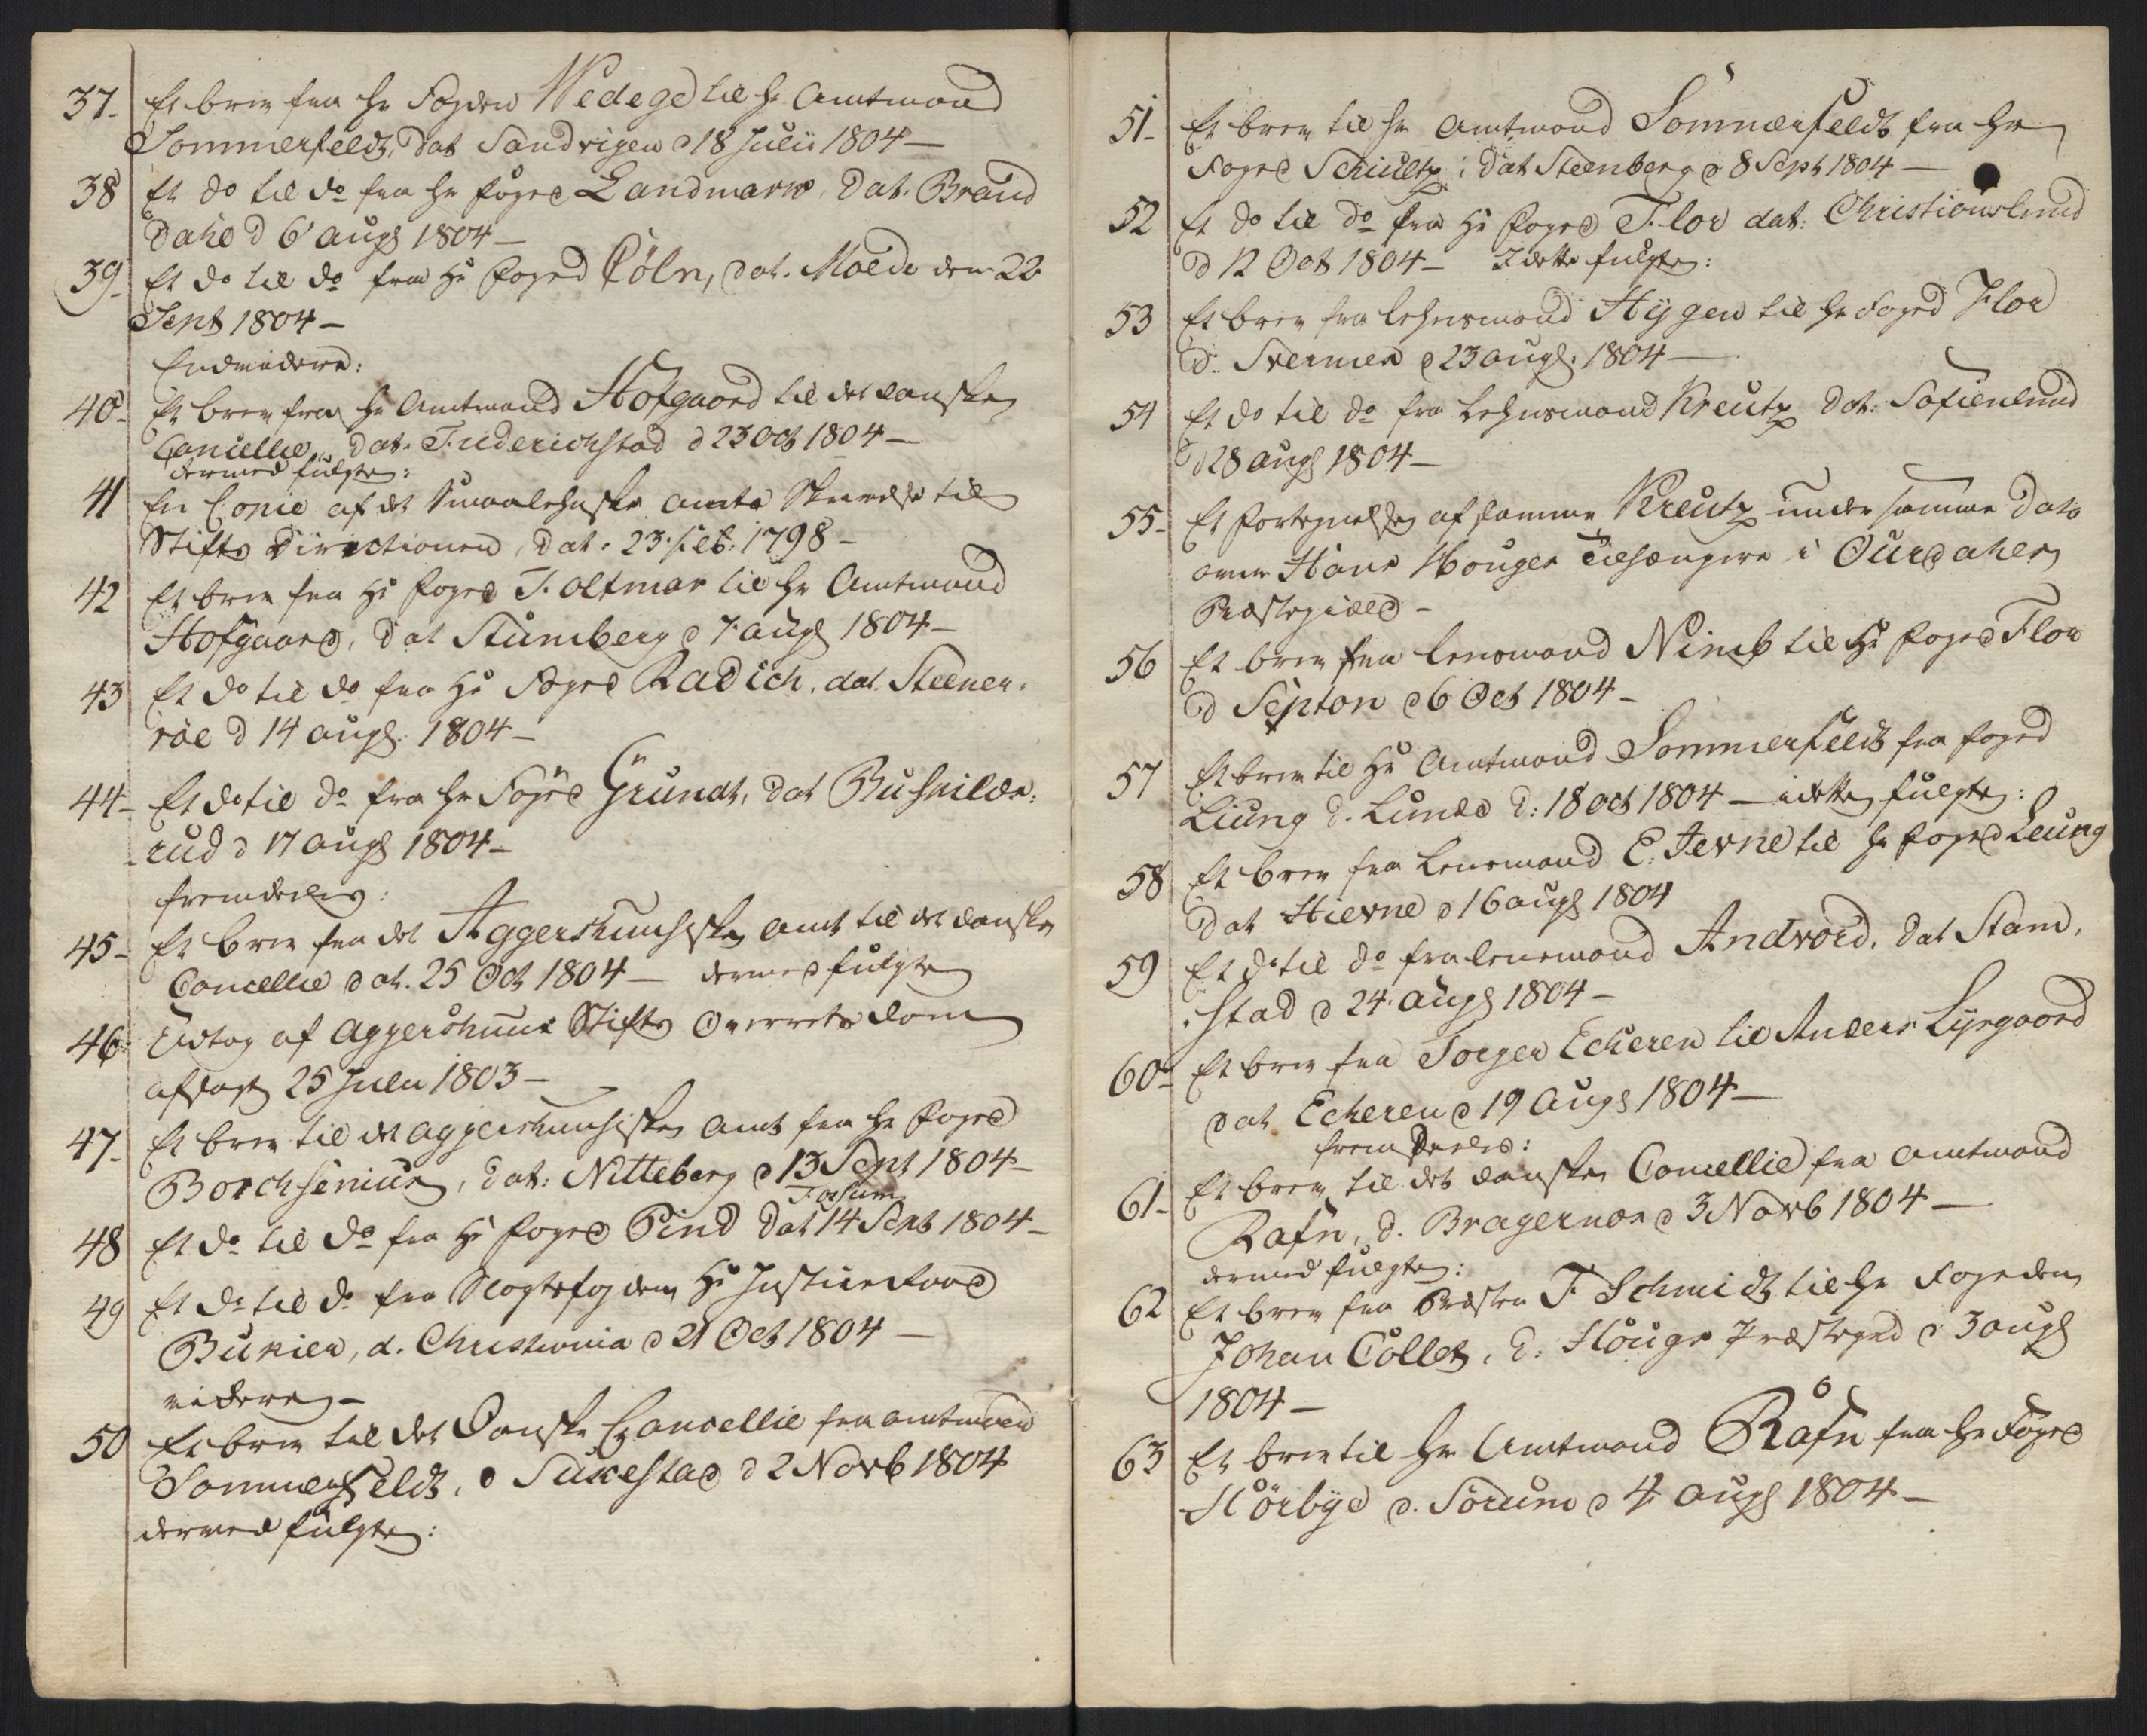 37- Et brev fra Hr Fogden Wedege til Hr Amtmand
Sommerfeldt, dat Sandvigen d 18 Julii 1804 -
38 Et do til do fra Hr Foged Landmark, dat. Brand
dahl d 6 augs 1804 -
39- Et do til do fra Hr Foged Cöln, dat. Molde den 22
Sept 1804 -
Endvidere:
40- Et brev fra Hr Amtmand Hofgaard til det danske
Cancellie, dat. Friderichstad d 23 Oct 1804 -
dermed fulgte:
41 En Copie af det Smaalehnske amts Skrivelse til
Stifts Directionen, dat. 23. feb. 1798 -
42 Et brev fra Hr Foged Foltmar til Hr Amtmand
Hofgaard, dat Stumberg d 7. augs 1804 -
43 Et do til do fra Hr Foged Radich. dat. Steener-
röe d 14 augs. 1804 -
44- Et do til do fra Hr Foged Grundt, dat Buskilde-
rud d 17 augs 1804 -
fremdeles:
45- Et brev fra det Aggershuusiske amt til det danske
Cancellie dat. 25 Oct 1804 - dermed fulgte
46 Udtog af Aggershuus Stifts Overrets dom
afsagt 25 Julii 1803 -
47- Et brev til det aggershuusiske amt fra Hr Foged
Borchsenius, dat: Nitteberg d 13 Sept 1804 -
Fossum
48 Et do til do fra Hr Foged Pind dat 14 Sept 1804 -
49 Et do til do fra Slogtsfogden Hr Justiceraad
Bukier, d. Christiania d 21 Oct 1804 -
videre -
50 Et brev til det Danske Cancellie fra amtmand
Sommerfeldt, d Sukestad d 2 Novb 1804
dermed fulgte:
51- Et brev til Hr Amtmand Sommerfeldt fra Hr
Foged Schultz: dat Steenberg d 8 Sept 1804 -
52 Et do til do fra Hr Foged Flor dat: Christianslund
d 12 Oct 1804 - I dette fulgte:
53 Et brev fra Lehnsmand Hygen til Hr Foged Flor
d. Svermer d 23 augs. 1804 -
54 Et do til do fra Lehnsmand Kreutz dat: Sofienlund
d 28 augs 1804 -
55- Et Fortegnelse af samme Kreutz under samme Dato
over Hans Houges Tilhængere i Ourdahls
Præstegield -
56 Et brev fra Lensmand Nimb til Hr Foged Flor
d Sejpton d 6 Oct 1804 -
57 Et brev til Hr Amtmand Sommerfeldt fra Foged
Liung d. Lunde d: 18 oct 1804 - i dette fulgte:
58 Et brev fra Lensmand E. Jerne til Hr Foged Leung
dat Hierne d 16 augs 1804
59 Et do til do fra Lensmand Andvord, dat Stam-
stad d 24 augs 1804 -
60- Et brev fra Torger Echeren til Anders Lysgaard
dat Echeren d 19 Augs 1804 -
fremdeeles:
61- Et brev til det danske Cancellie fra Amtmand
Rafn, d. Bragernæs d 3 Novb 1804 -
dermed fulgte:
62 Et brev fra Præsten F. Schmidt til Hr Fogeden
Johan Collet, d: Houge Præstegrd d 3 augs
1804 -
63 Et brev til Hr Amtmand Rafn fra Hr Foged
Hörbye d. Sörum d 4 augs 1804 -